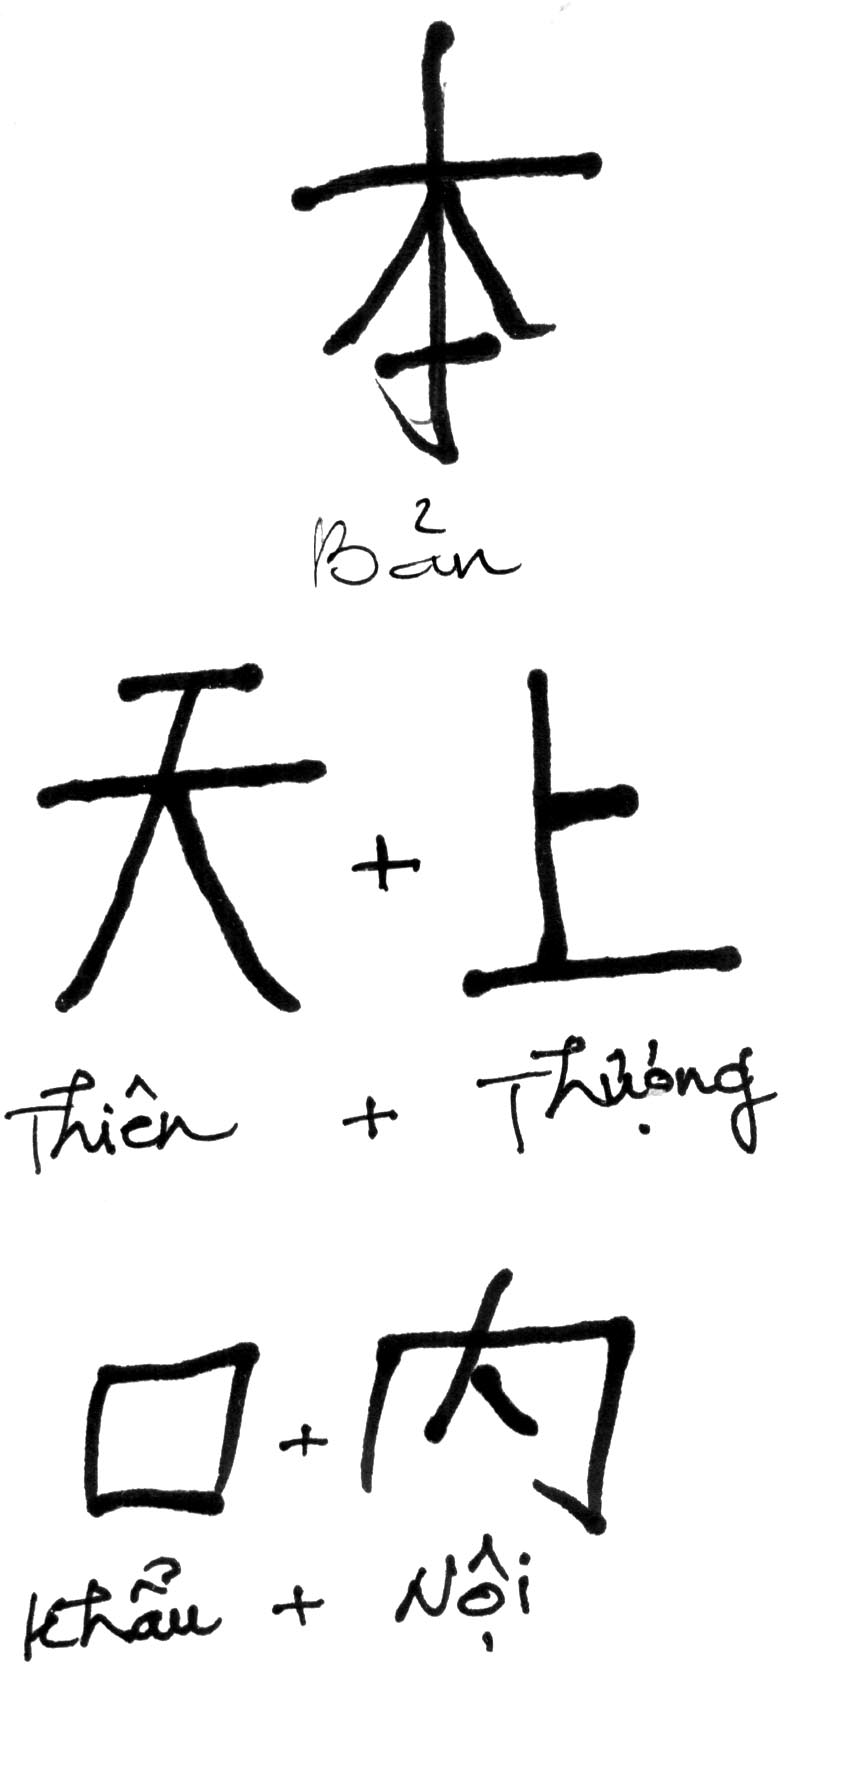 本
Bản
天 + 上
Thiên + Thượng
口 + 内
Khẩu + Nội